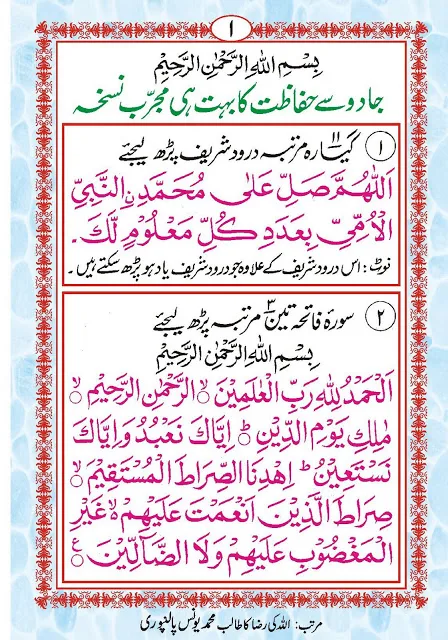 ۱
بِسْمِ اللهِ الرَّحْمٰنِ الرَّحِيْمِ
جادو سے حفاظت کا بہت ہی مجرّب نسخہ
۱ گیارہ ۱۱ مرتبہ درود شریف پڑھ لیجئے
اَللّٰهُمَّ صَلِّ عَلٰى مُحَمَّدِ نِ النَّبِيِّ
الْاُمِّيِّ بِعَدَدِ كُلِّ مَعْلُوْمٍ لَّكَ۔
نوٹ: اس درود شریف کے علاوہ جو درود شریف یاد ہو پڑھ سکتے ہیں۔
۲ سورۂ فاتحہ تین ۳ مرتبہ پڑھ لیجئے
بِسْمِ اللهِ الرَّحْمٰنِ الرَّحِيْمِ
اَلْحَمْدُ لِلّٰهِ رَبِّ الْعٰلَمِيْنَ ۙ الرَّحْمٰنِ الرَّحِيْمِ ۙ
مٰلِكِ يَوْمِ الدِّيْنِ ؕ اِيَّاكَ نَعْبُدُ وَاِيَّاكَ
نَسْتَعِيْنُ ؕ اِهْدِنَا الصِّرَاطَ الْمُسْتَقِيْمَ ۙ
صِرَاطَ الَّذِيْنَ اَنْعَمْتَ عَلَيْهِمْ ۙ غَيْرِ
الْمَغْضُوْبِ عَلَيْهِمْ وَلَا الضَّآلِّيْنَ ۠
مرتب: اللہ کی رضا کا طالب محمد یونس پالنپوری